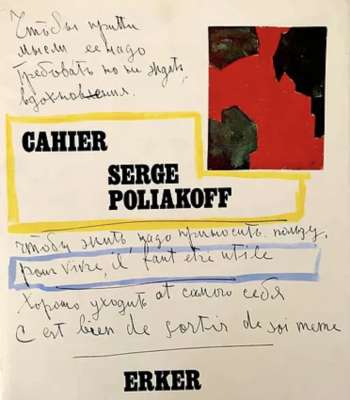 Чтобы притти
мысли ее надо
требовать но не ждать
вдохновения.
CAHIER
SERGE
POLIAKOFF
чтобы жить, надо приносить пользу.
pour vivre, il faut etre utile
Хорошо уходить at самого себя
C est bien de sortir de soi meme
ERKER